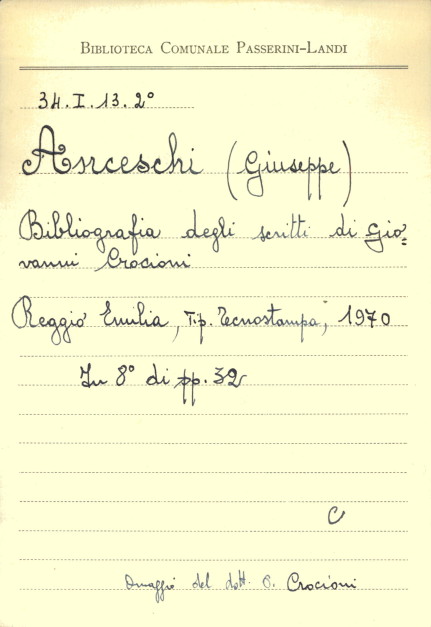 BIBLIOTECA COMUNALE PASSERINI-LANDI
34.I.13.2°
Anceschi (Giuseppe)
Bibliografia degli scritti di Gio=
vanni Crocioni
Reggio Emilia, Tip. Tecnostampa, 1970
In 8° di pp. 32
C
Omaggio del dott. O. Crocioni